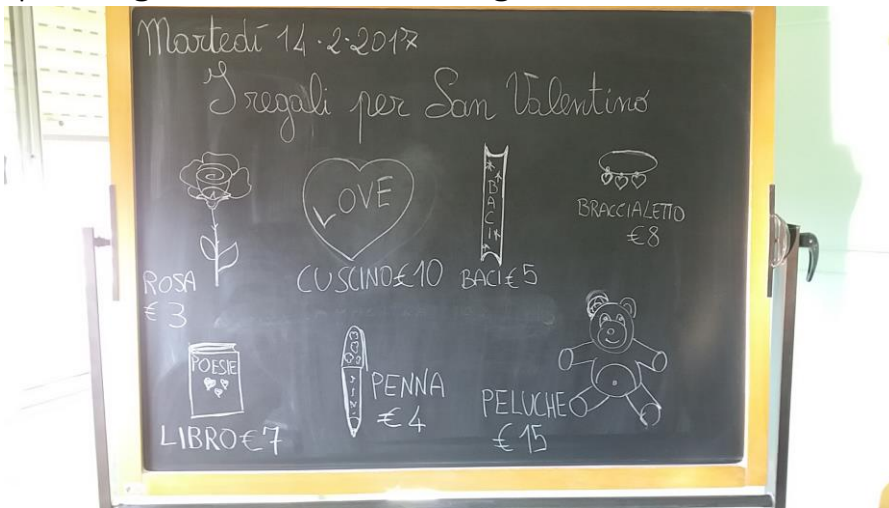 Martedí 14.2.2017
I regali per San Valentino
LOVE
BACI
BRACCIALETTO
€8
ROSA
€3
CUSCINO €10
BACI €5
POESIE
LIBRO €7
PENNA
€4
PELUCHE
€15